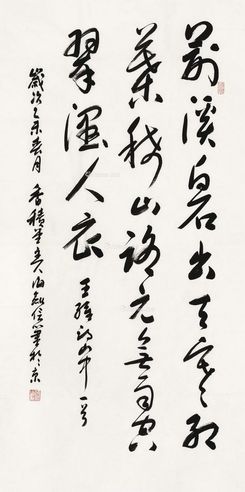 荆溪白石出天寒红
葉稀山路元無雨空
翠濕人衣 王維詩山中一首
歲次乙未春月 香積 信筆於京